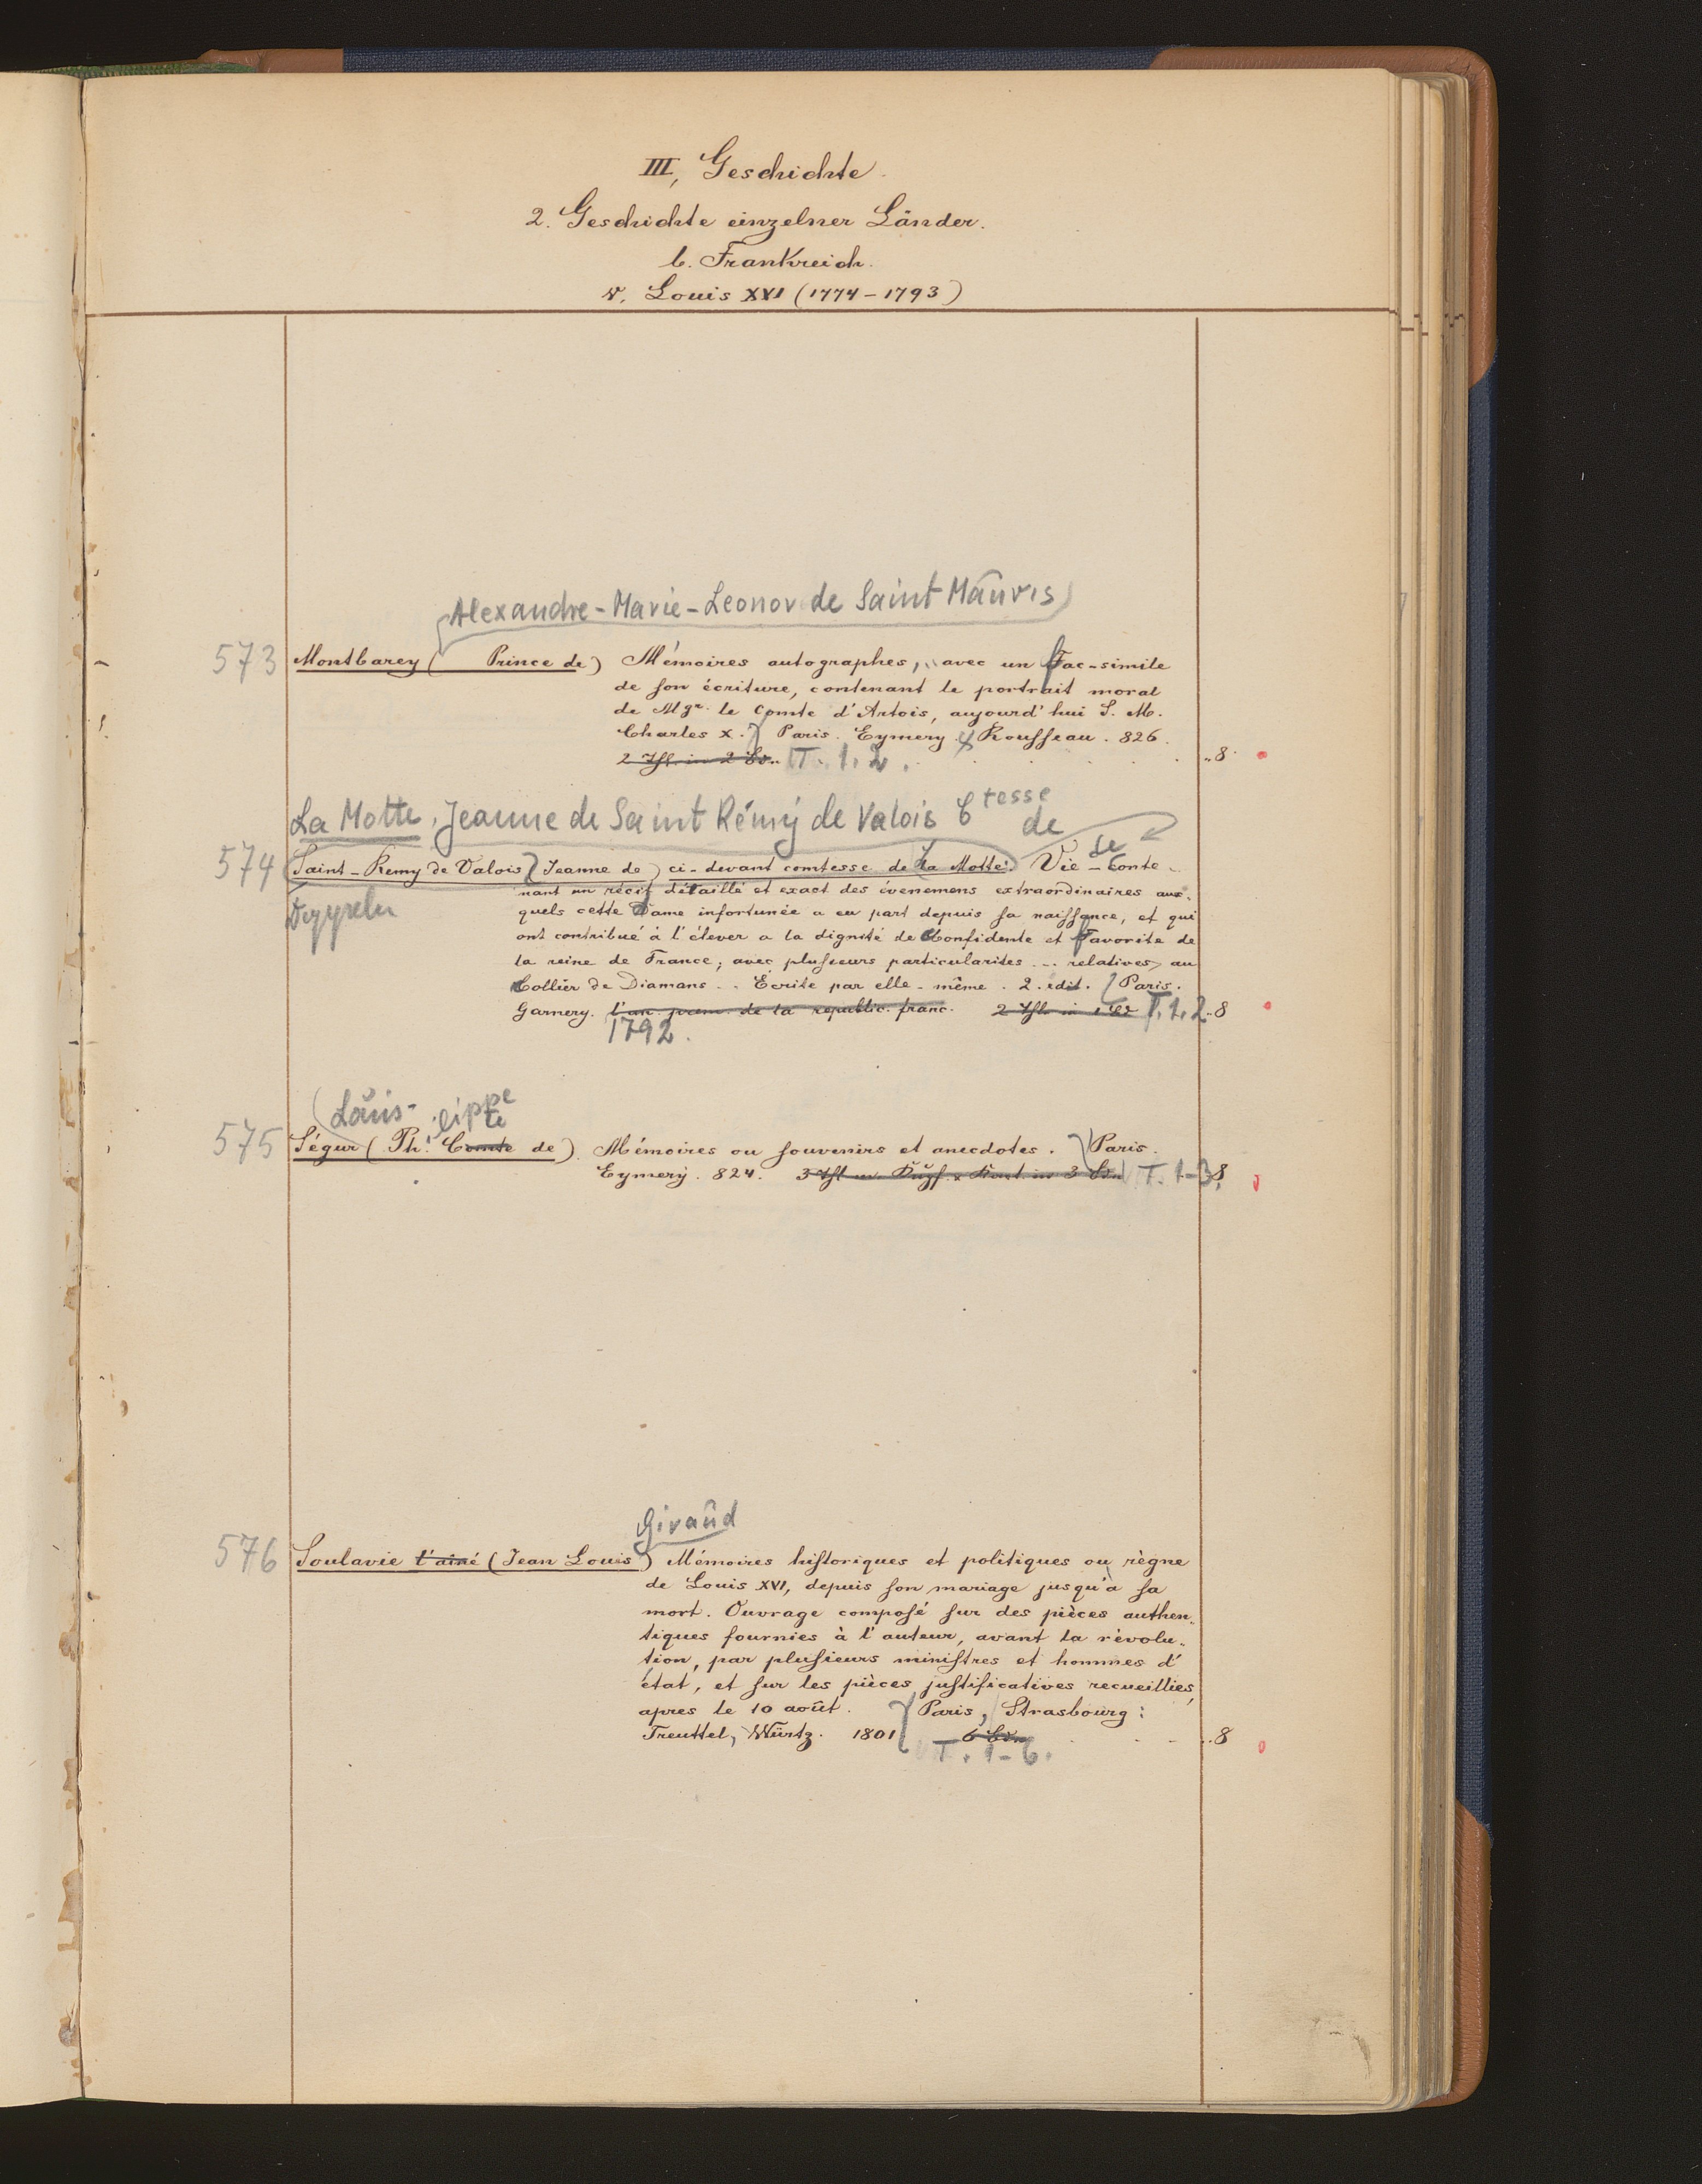 III, Geschichte.
2. Geschichte einzelner Länder.
b. Frankreich.
v. Louis XVI (1774-1793)
Alexandre-Marie-Leonor de Saint Maũris
573 Montbarey ( Prince de) Mémoires autographes, avec un Fac-simile
de son écriture, contenant le portrait moral
de Mgr. le Comte d'Artois, aujourd'hui S. M.
Charles X. Paris. Eymery, Rousseau. 826.
2 Thl. in 2 Bdn. T. 1. 2. ..8
La Motte, Jeanne de Saint Rémy de Valois Ctesse
de
574 Saint-Remy de Valois (Jeanne de) ci-devant comtesse de La Motte. Vie de - Conte-
nant un récit détaillé et exact des évenemens extraordinaires aux-
quels cette Dame infortunée a eu part depuis sa naissance, et qui
ont contribué à l'élever a la dignité de Confidente et Favorite de
la reine de France; avec plusieurs particularites ... relatives au
Collier de Diamans .. Ecrite par elle-même. 2. edit. Paris.
Garnery. l'an prem. de la republic. franc. 2 Thl. in 1 Bd T. 1. 2 ..8
1792.
Loũis- ilippe
te
575 Ségur (Ph. Comte de). Mémoires ou souvenirs et anecdotes. Paris.
Eymery. 824. 3 Thl in 3 Bdn T. 1-3 8
Giraũd
576 Soulavie l'ainé (Jean Louis) Mémoires historiques et politiques ou règne
de Louis XVI, depuis son mariage jusqu'à sa
mort. Ouvrage composé sur des pièces authen-
tiques fournies à l'auteur, avant la révolu-
tion, par plusieurs ministres et hommes d'
état, et sur les pièces justificatives recueillies,
apres le 10 août. Paris, Strasbourg:
Treuttel, Würtz. 1801 6 Bdn ..8
T. 1-6.